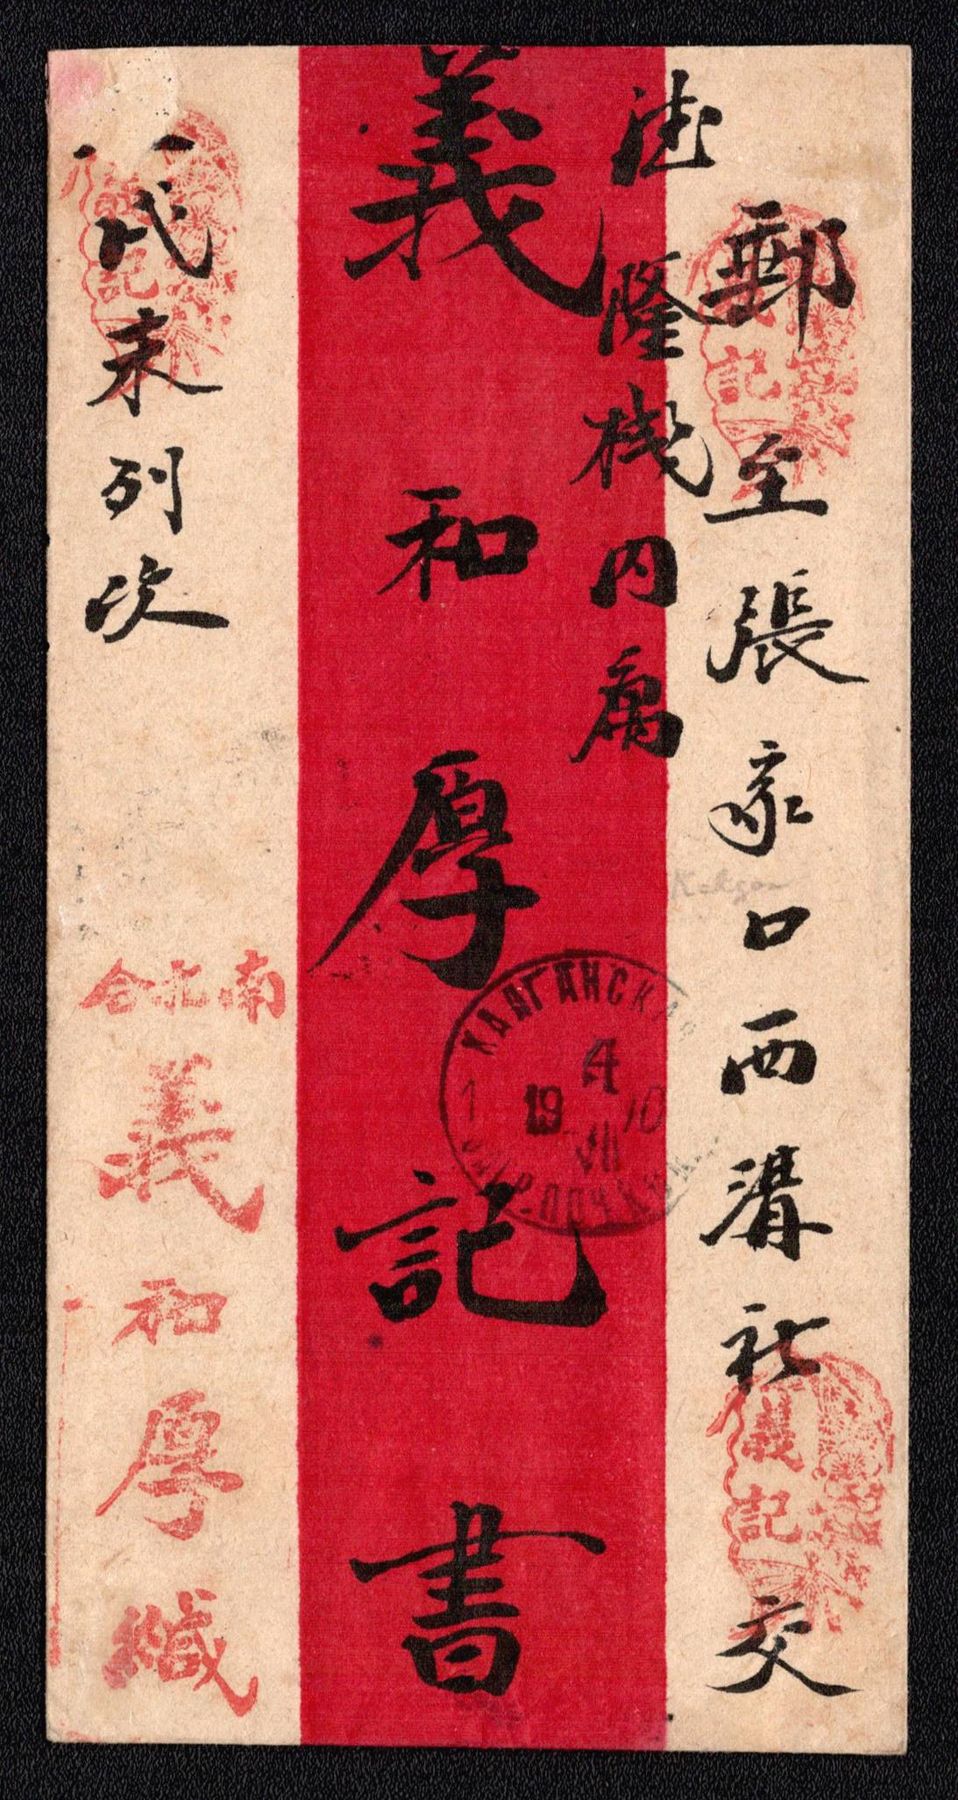 郵至張家口西溝社交
德隆棧内寓
義和厚記書
代未列次
南北合
義和厚緘
義記
義記
記
Kalgan
КАЛГАНСКАЯ
4
19 10
VII
1